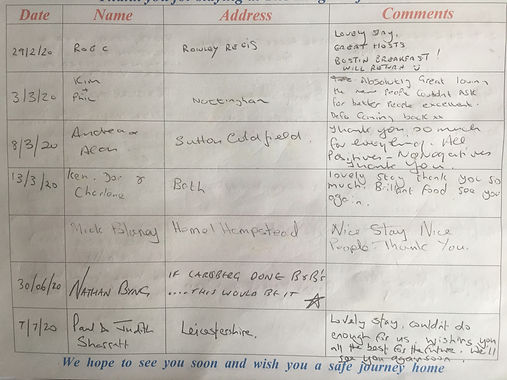 Date Name Address Comments
29/2/20 Rowley Regis Lovely stay,
Great hosts
Bostin Breakfast!
Will return
3/3/20 Kim + Phil Nottingham Absolutely Great
the people couldnt ask
for better people excellent.
Defo Coming back xx
8/3/20 Andrea Sutton Coldfield. Thank you, so much
for everything. All
Positives - No Negatives
Thank You.
13/3/20 Ken, & Bath lovely stay thank you so
much. food see you
again.
Mick Hemel Hempstead Nice Stay Nice
People - Thank You.
30/06/20 Nathan If Carlsberg done B+B's
....This would be it
7/7/20 Paul & Judith Leicestershire. Lovely stay, couldnt do
enough for us. Wishing you
all the best for the future. We'll
see you again soon.
We hope to see you soon and wish you a safe journey home